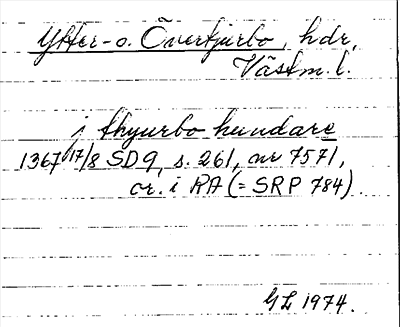 Ytter- o. Övertjurbo, hdr,
Västm. l.
i thyurbo hundare
1367 17/8 SD 9, s. 261, nr 7571,
or. i RA (= SRP 784).
GL 1974.